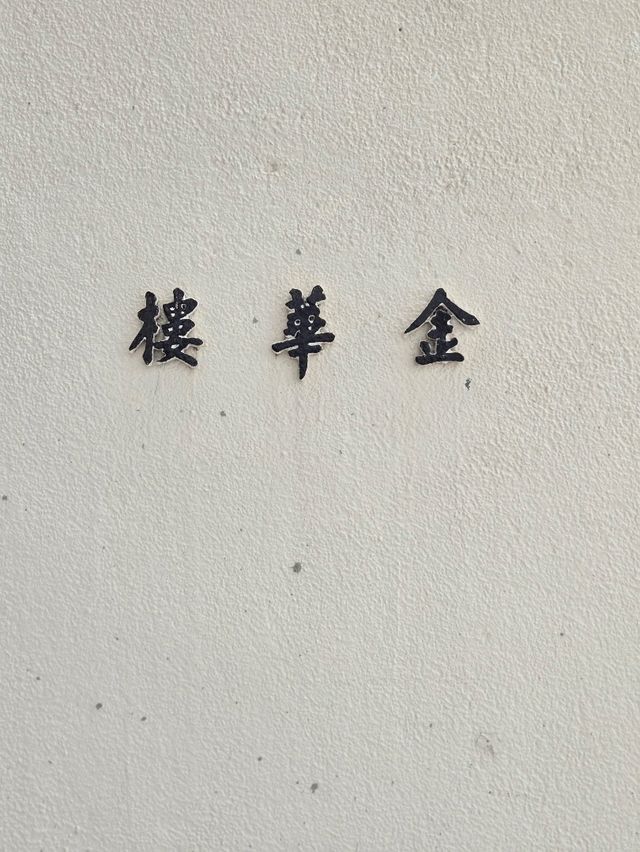 金華樓